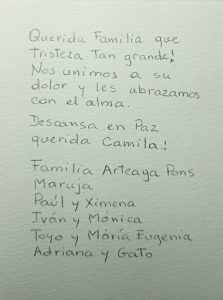 Querida Familia que
tristeza tan grande!
Nos unimos a su
dolor y les abrazamos
con el alma.
Descansa en Paz
querida Camila!
Familia Arteaga Pons
Maruja
Paúl y Ximena
Iván y Mónica
Toyo y María Eugenia
Adriana y Gato